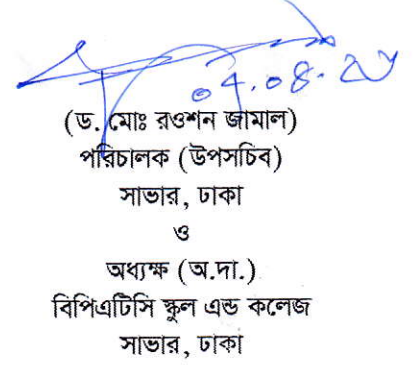 (ড. মোঃ রওশন জামাল)
পরিচালক (উপসচিব)
সাভার, ঢাকা
ও
অধ্যক্ষ (অ.দা.)
বিপিএটিসি স্কুল এন্ড কলেজ
সাভার, ঢাকা